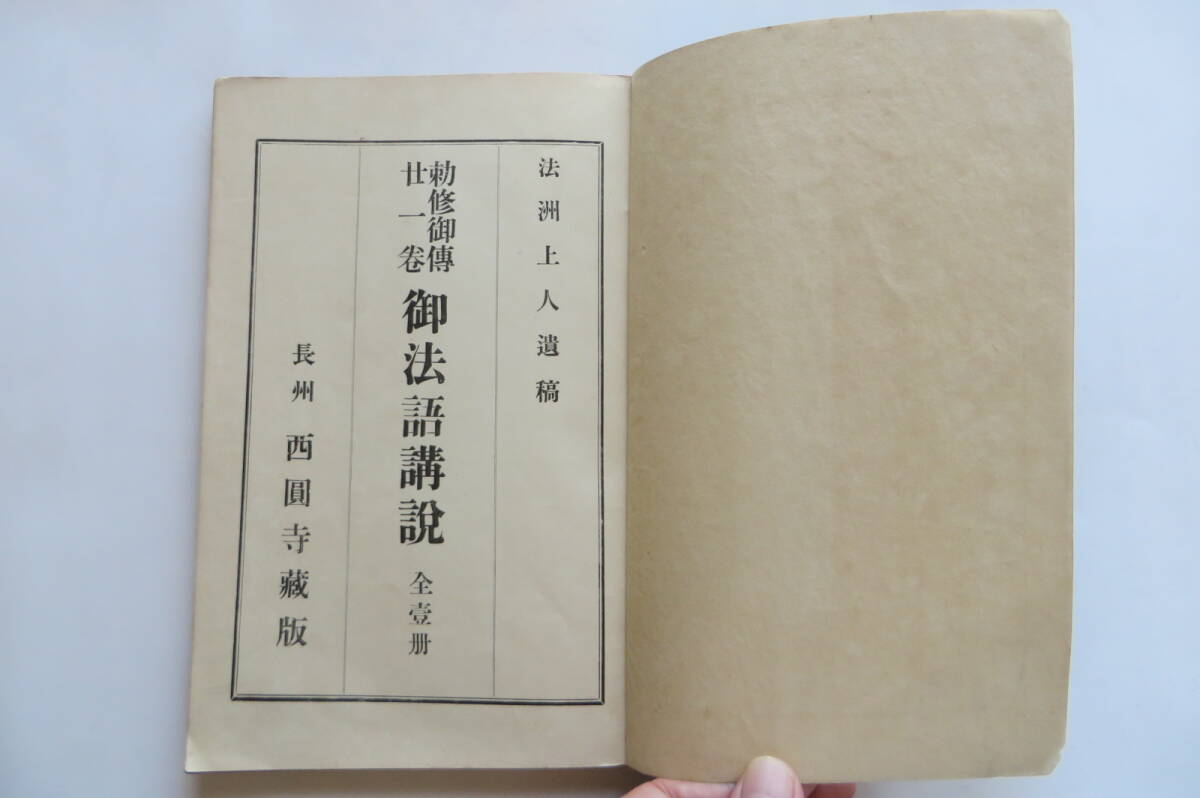 法洲上人遺稿
勅修御傳
廿一卷
御法語講說 全壹册
長州 西圓寺藏版